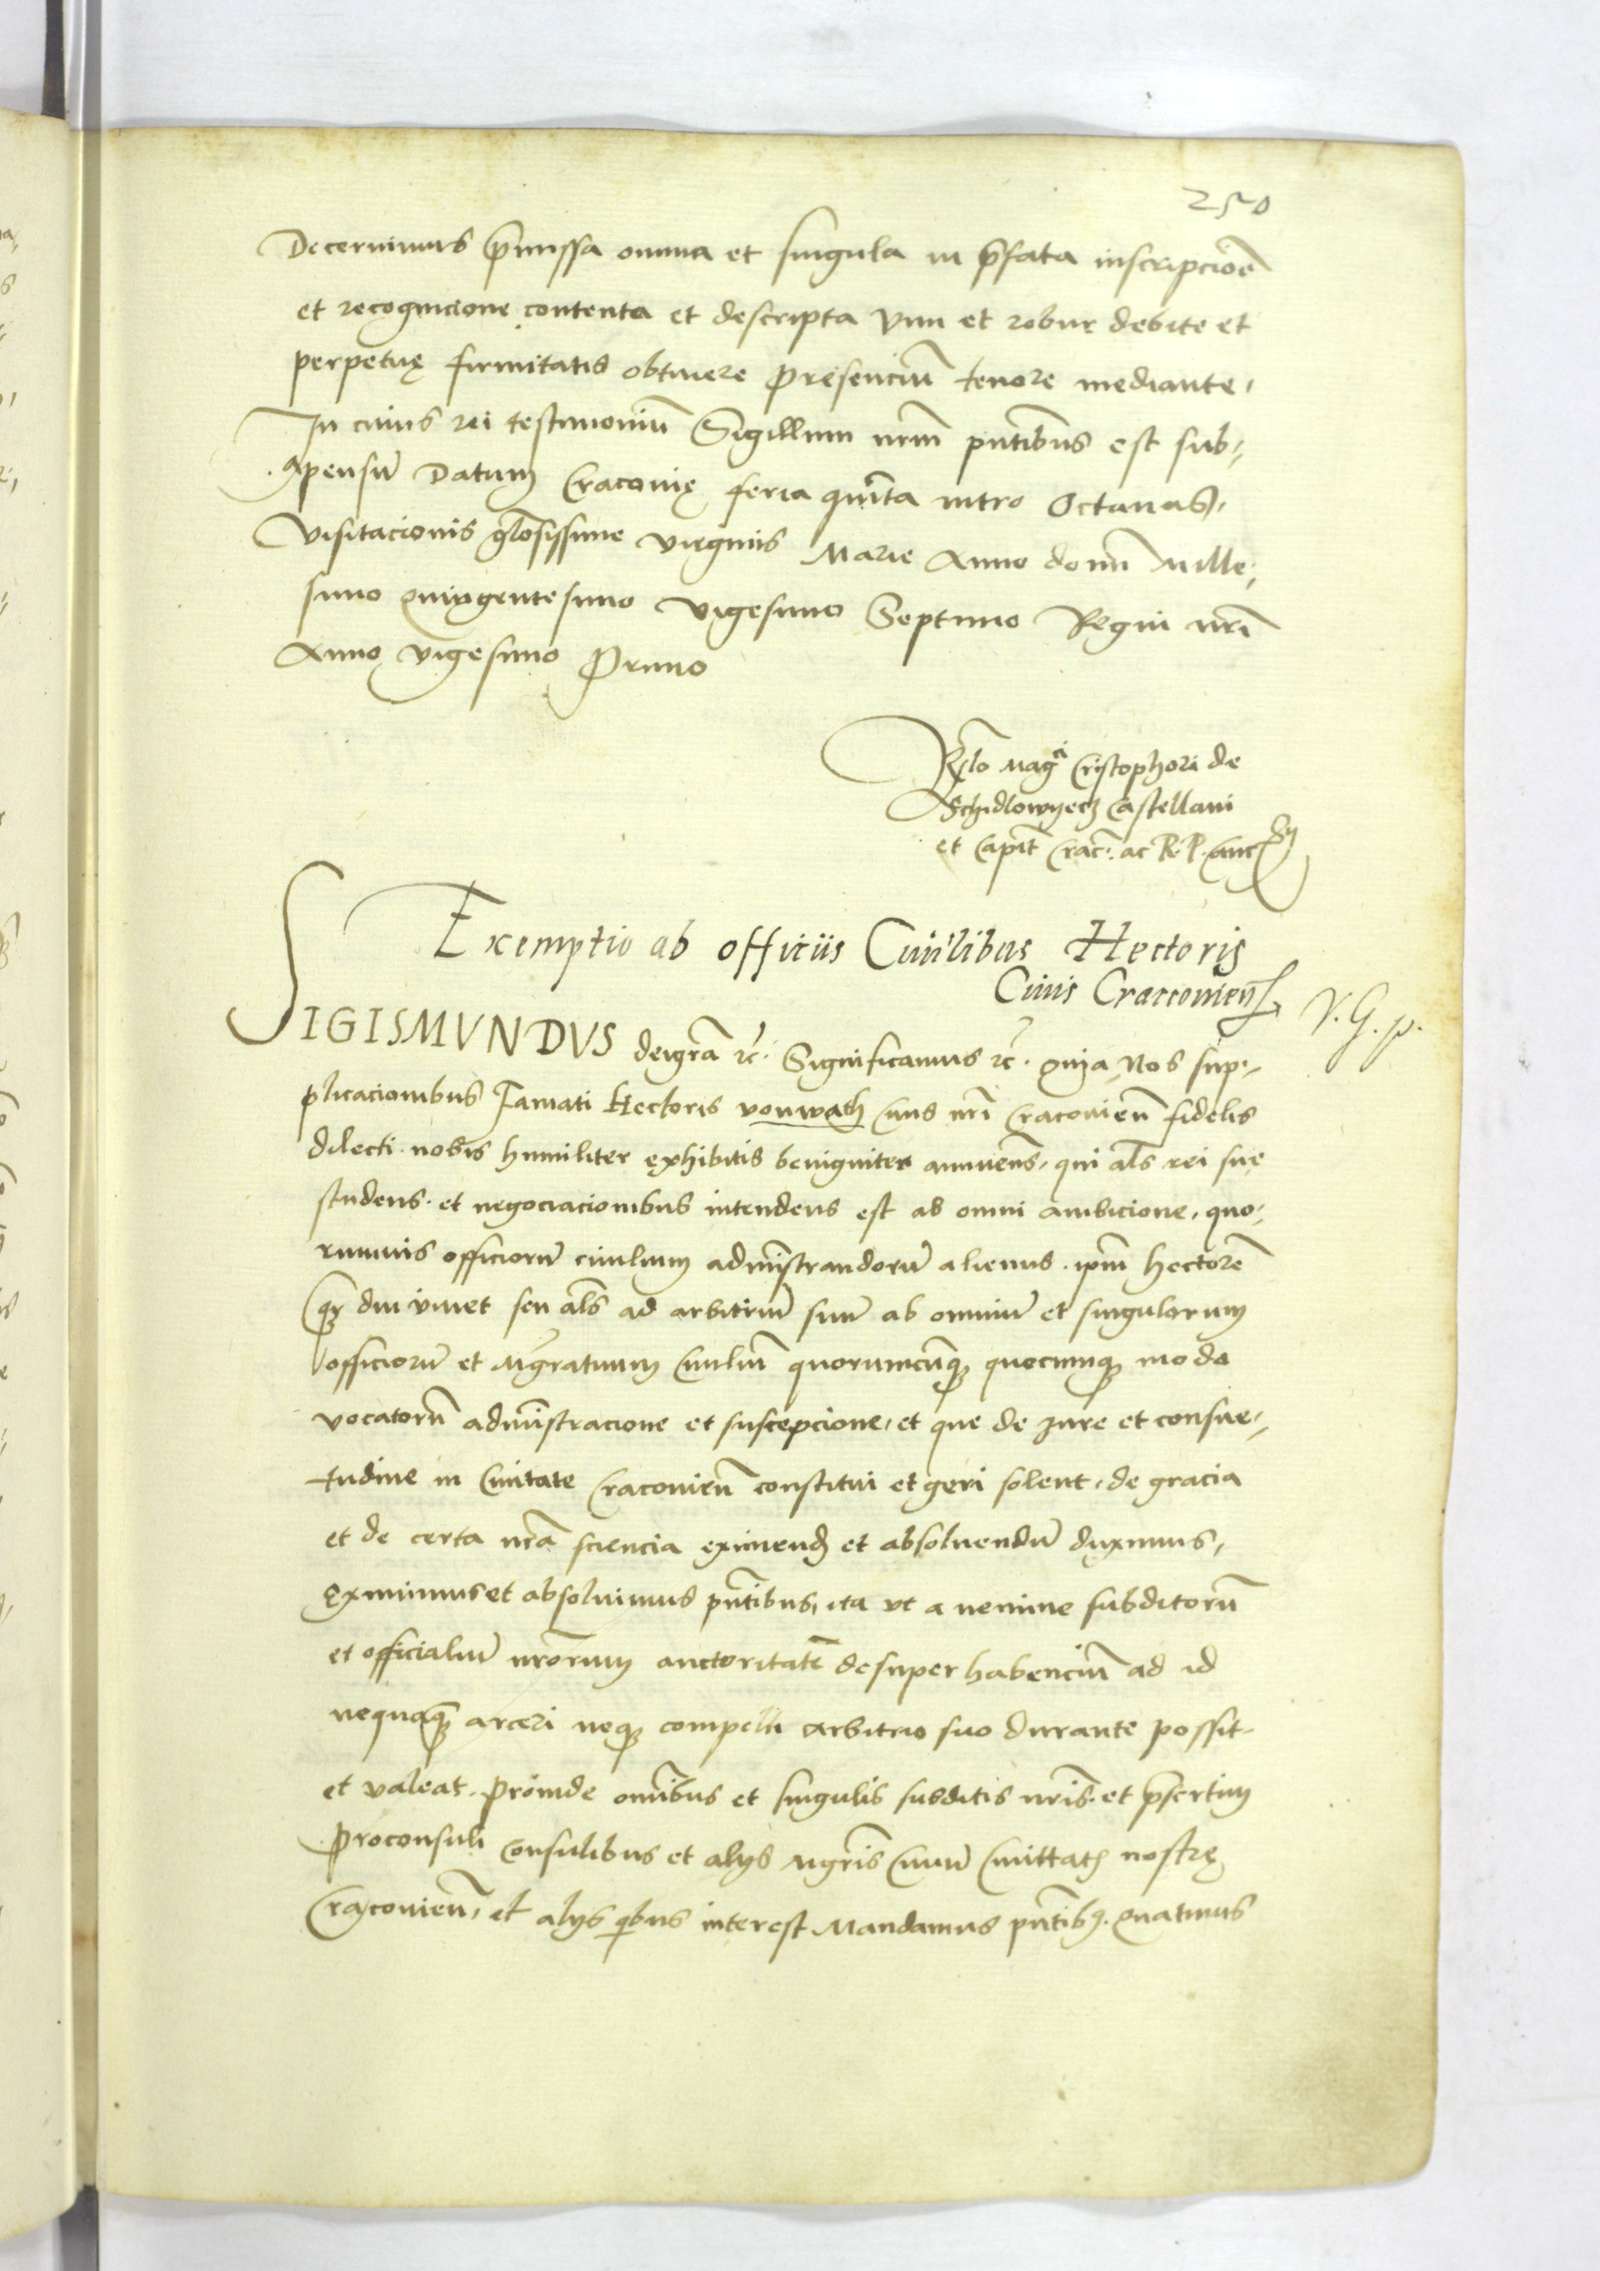 250
Decernimus p̄missa omnia et singula in p̄fata inscripcioē
et recognicione contenta et descripta vim et robur debite et
perpetuę firmitatis obtinere presenciū tenore mediante,
In cuius rei testimoniū Sigillum nrm̄ pn̄tibus est sub-
appensū Datum Cracovię feria quīta intro Octavas,
visitacionis glosīssime virginis Marie Anno domī Mille-
simo quīgentesimo vigesimo Septimo Regni nrī
Anno vigesimo Primo
Relō Magci Cristophori de
Schidlowyecz Castellani
et Capit̄ Crac̄. ac R. P. Canc
Exemptio ab officiis Civilibus Hectoris
Civis Craccovien̄
V. G. p.
SIGISMVNDVS dei grā rc̄. Significamus rc̄. quia Nos sup-
plicacionibus Famati Hectoris vonwath Civis nrī Cracovien̄ fidelis
dilecti nobis humiliter exhibitis benigniter annuen̄s, qui al̄s rei suę
studens et negociacionibus intendens est ab omni ambicione, quo-
rumvis officiorū civilium adm̄istrandorū alienus. ipm̄ Hectorē
q diu vivet seu al̄s ad arbitriū suū ab omniū et singulorum
officiorū et Mgratuum Civiliū quorumcūq quocumq modo
vocatorū adm̄istracione et suscepcione, et que de Jure et consue-
tudine in Civitate Cracovien̄ constitui et geri solent, de gracia
et de certa nrā sciencia eximend et absolvendū duximus,
Eximimus et absolvimus pn̄tibus, ita vt a nemine subditorū
et officialiū nrōrum auctoritatē desuper habenciū ad id
nequaq̄ arceri neq compelli arbitrio suo durante possit
et valeat. Proinde om̄ibus et singulis subditis nrīs. et p̄sertim
Proconsuli Consulibus et alys Mgrīs Civiū Civittatis nostrę
Cracovien̄, et alys qibus interest Mandamus pn̄tibq. Quatinus